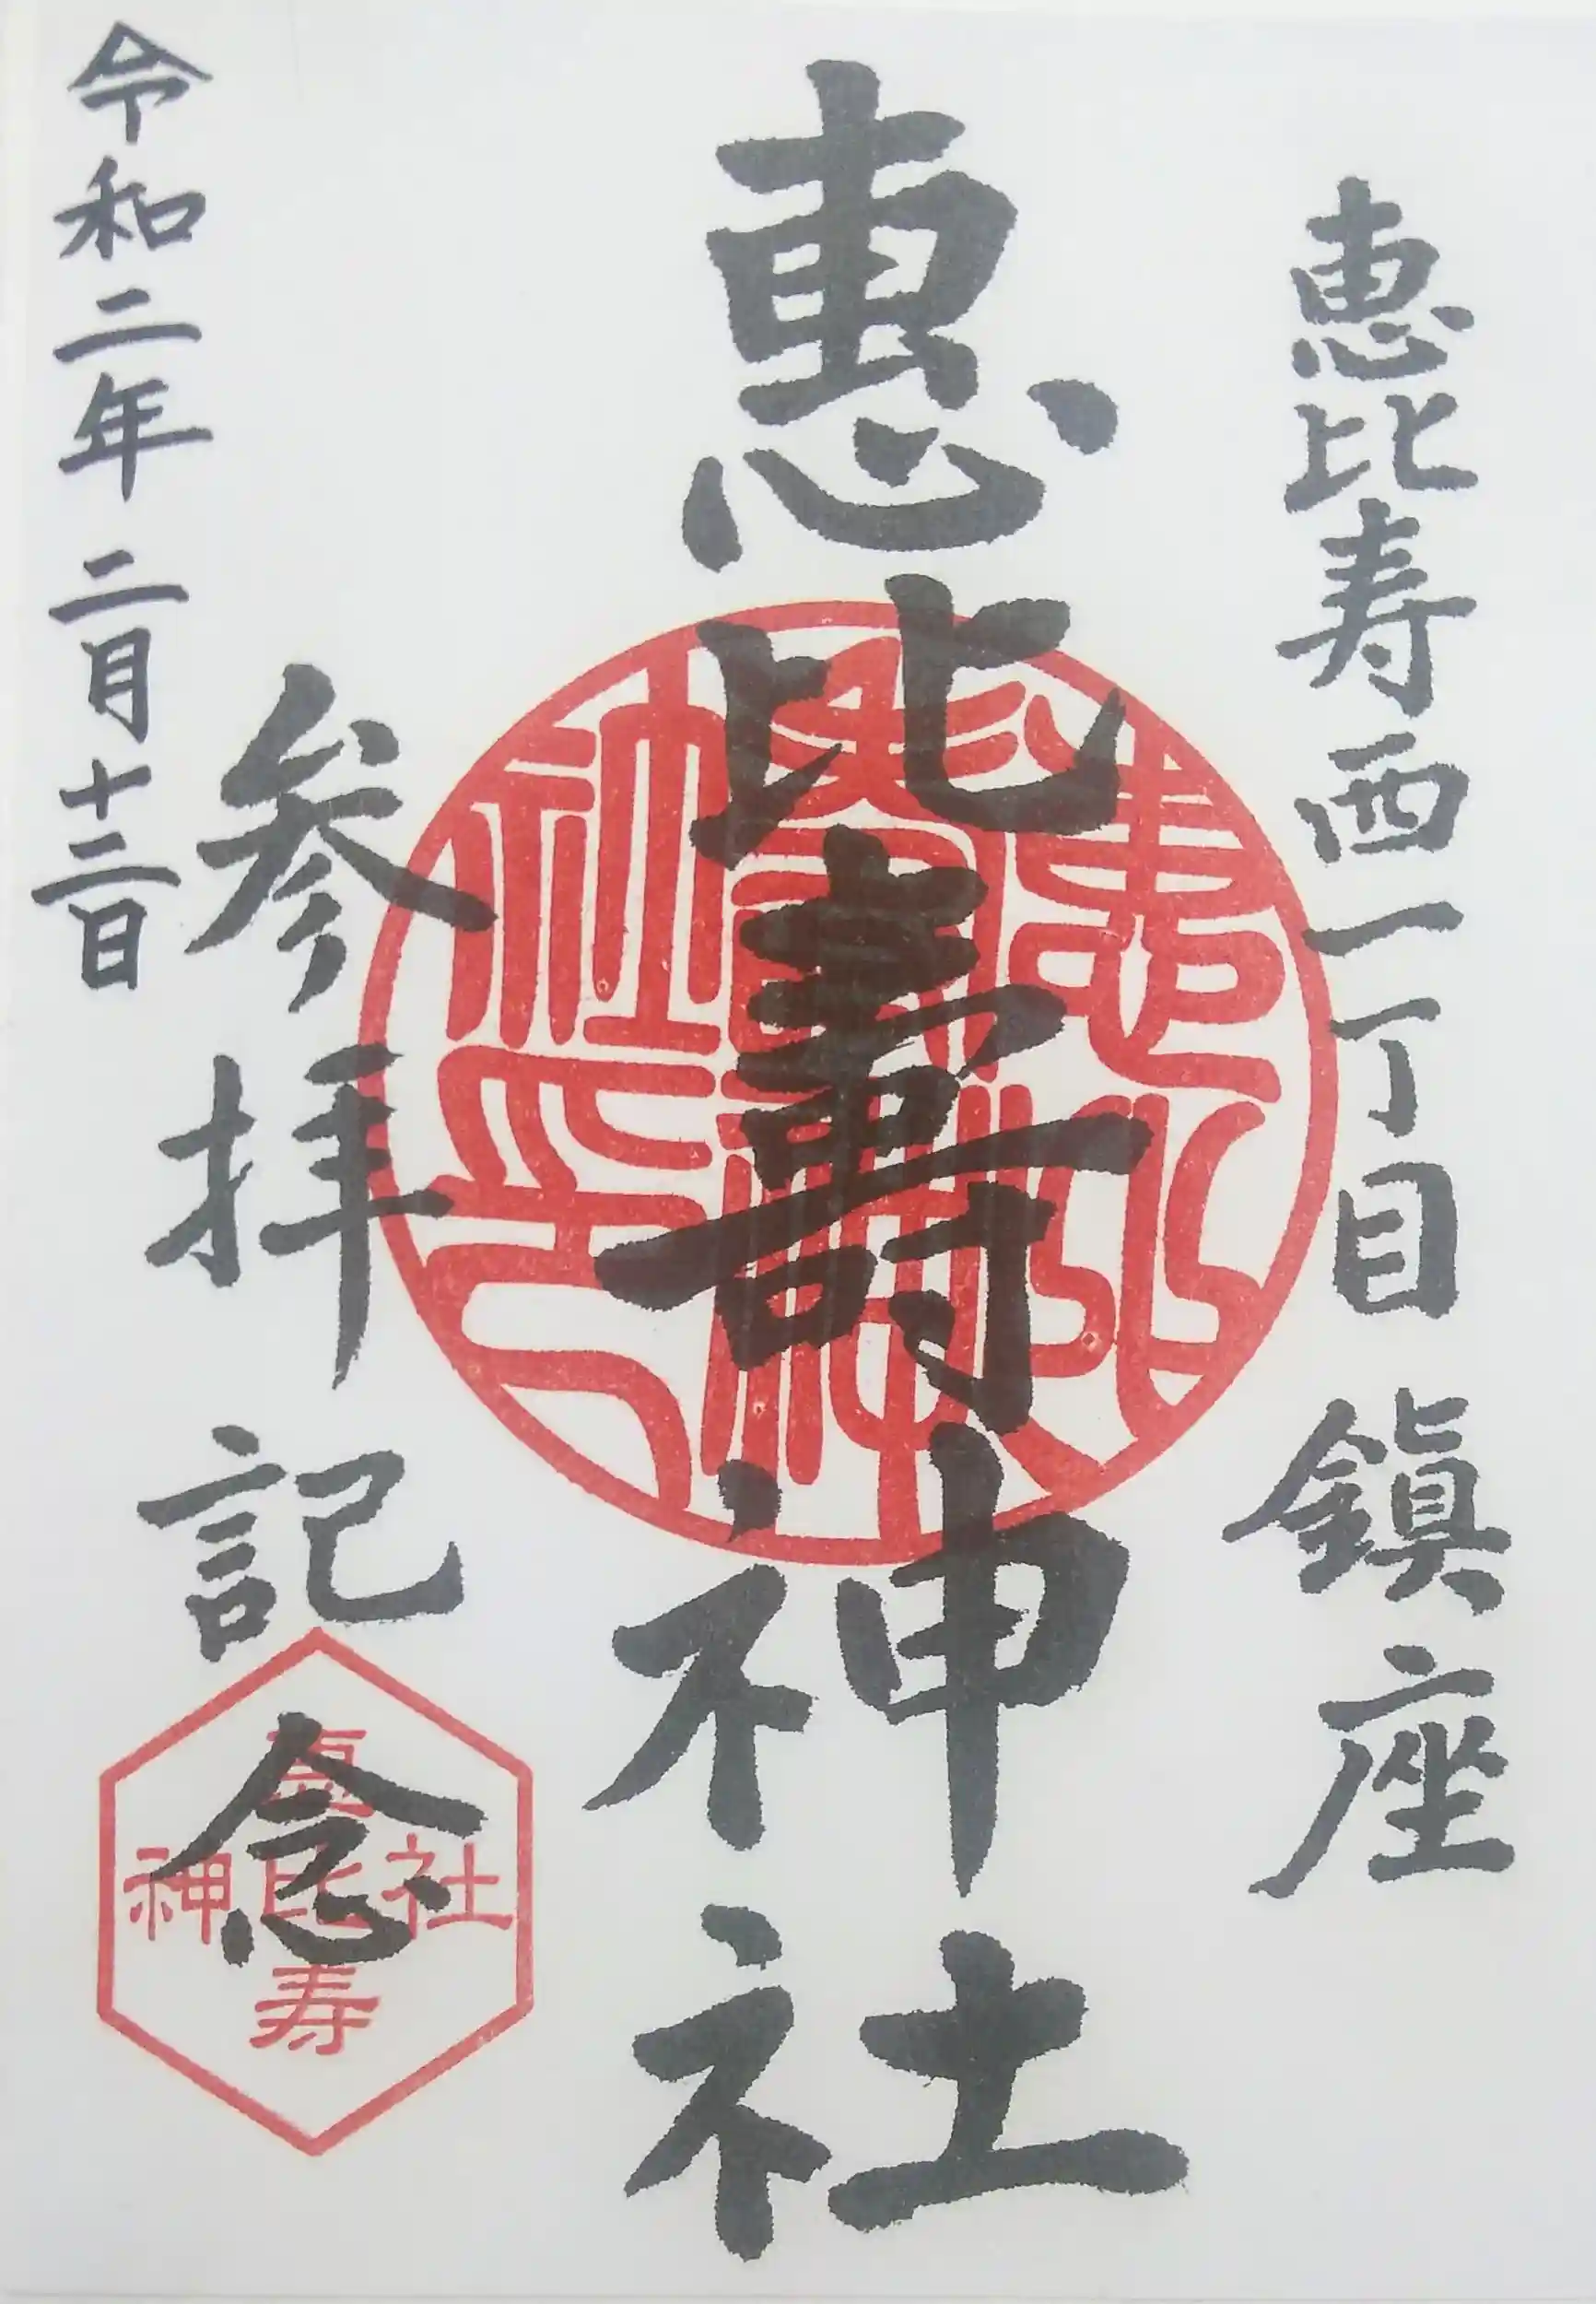 恵比寿西一丁目 鎮座
恵比壽神社
参拝記念
令和二年 二月十二日
恵
神比社
寿